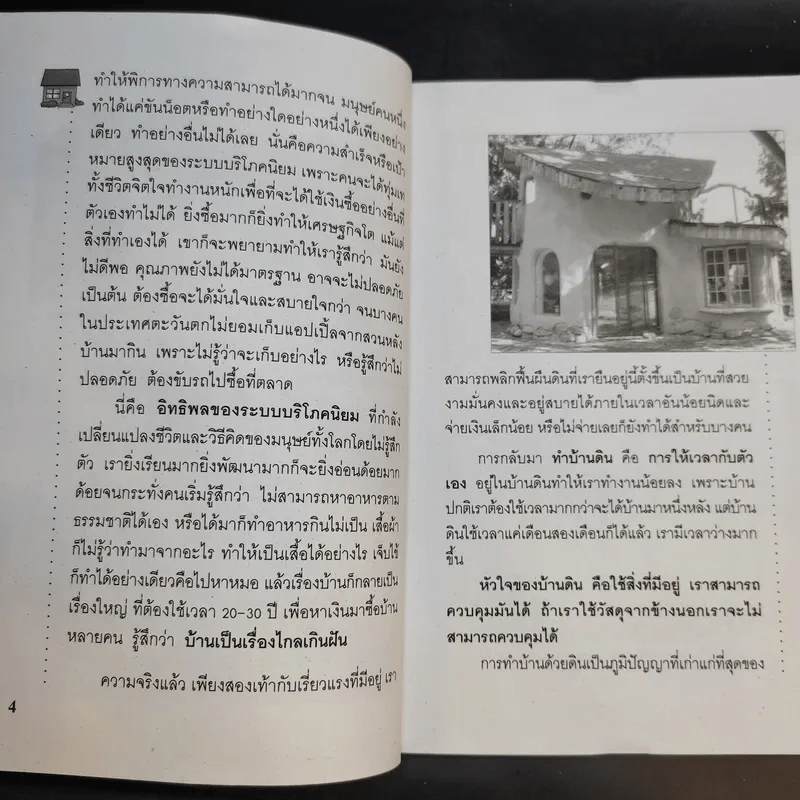 ทำให้พิการทางความสามารถได้มากจน มนุษย์คนหนึ่ง
ทำได้แค่ขันน็อตหรือทำอย่างใดอย่างหนึ่งได้เพียงอย่าง
เดียว ทำอย่างอื่นไม่ได้เลย นั่นคือความสำเร็จหรือเป้า
หมายสูงสุดของระบบบริโภคนิยม เพราะคนจะได้ทุ่มเท
ทั้งชีวิตจิตใจทำงานหนักเพื่อที่จะได้ใช้เงินซื้ออย่างอื่นที่
ตัวเองทำไม่ได้ ยิ่งซื้อมากก็ยิ่งทำให้เศรษฐกิจโต แม้แต่
สิ่งที่ทำเองได้ เขาก็จะพยายามทำให้เรารู้สึกว่า มันยัง
ไม่ดีพอ คุณภาพยังไม่ได้มาตรฐาน อาจจะไม่ปลอดภัย
เป็นต้น ต้องซื้อจะได้มั่นใจและสบายใจกว่า จนบางคน
ในประเทศตะวันตกไม่ยอมเก็บแอปเปิ้ลจากสวนหลัง
บ้านมากิน เพราะไม่รู้ว่าจะเก็บอย่างไร หรือรู้สึกว่าไม่
ปลอดภัย ต้องขับรถไปซื้อที่ตลาด
นี่คือ อิทธิพลของระบบบริโภคนิยม ที่กำลัง
เปลี่ยนแปลงชีวิตและวิธีคิดของมนุษย์ทั้งโลกโดยไม่รู้สึก
ตัว เรายิ่งเรียนมากยิ่งพัฒนามากก็จะยิ่งอ่อนด้อยมาก
ด้อยจนกระทั่งคนเริ่มรู้สึกว่า ไม่สามารถหาอาหารตาม
ธรรมชาติได้เอง หรือได้มาก็ทำอาหารกินไม่เป็น เสื้อผ้า
ก็ไม่รู้ว่าทำมาจากอะไร ทำให้เป็นเสื้อได้อย่างไร เจ็บไข้
ก็ทำได้อย่างเดียวคือไปหาหมอ แล้วเรื่องบ้านก็กลายเป็น
เรื่องใหญ่ ที่ต้องใช้เวลา 20-30 ปี เพื่อหาเงินมาซื้อบ้าน
หลายคน รู้สึกว่า บ้านเป็นเรื่องไกลเกินฝัน
ความจริงแล้ว เพียงสองเท้ากับเรี่ยวแรงที่มีอยู่ เรา
4
สามารถพลิกฟื้นผืนดินที่เรายืนอยู่นี้ตั้งขึ้นเป็นบ้านที่สวย
งามมั่นคงและอยู่สบายได้ภายในเวลาอันน้อยนิดและ
จ่ายเงินเล็กน้อย หรือไม่จ่ายเลยก็ยังทำได้สำหรับบางคน
การกลับมา ทำบ้านดิน คือ การให้เวลากับตัว
เอง อยู่ในบ้านดินทำให้เราทำงานน้อยลง เพราะบ้าน
ปกติเราต้องใช้เวลามากกว่าจะได้บ้านมาหนึ่งหลัง แต่บ้าน
ดินใช้เวลาแค่เดือนสองเดือนก็ได้แล้ว เรามีเวลาว่างมาก
ขึ้น
หัวใจของบ้านดิน คือใช้สิ่งที่มีอยู่ เราสามารถ
ควบคุมมันได้ ถ้าเราใช้วัสดุจากข้างนอกเราจะไม่
สามารถควบคุมได้
การทำบ้านด้วยดินเป็นภูมิปัญญาที่เก่าแก่ที่สุดของ